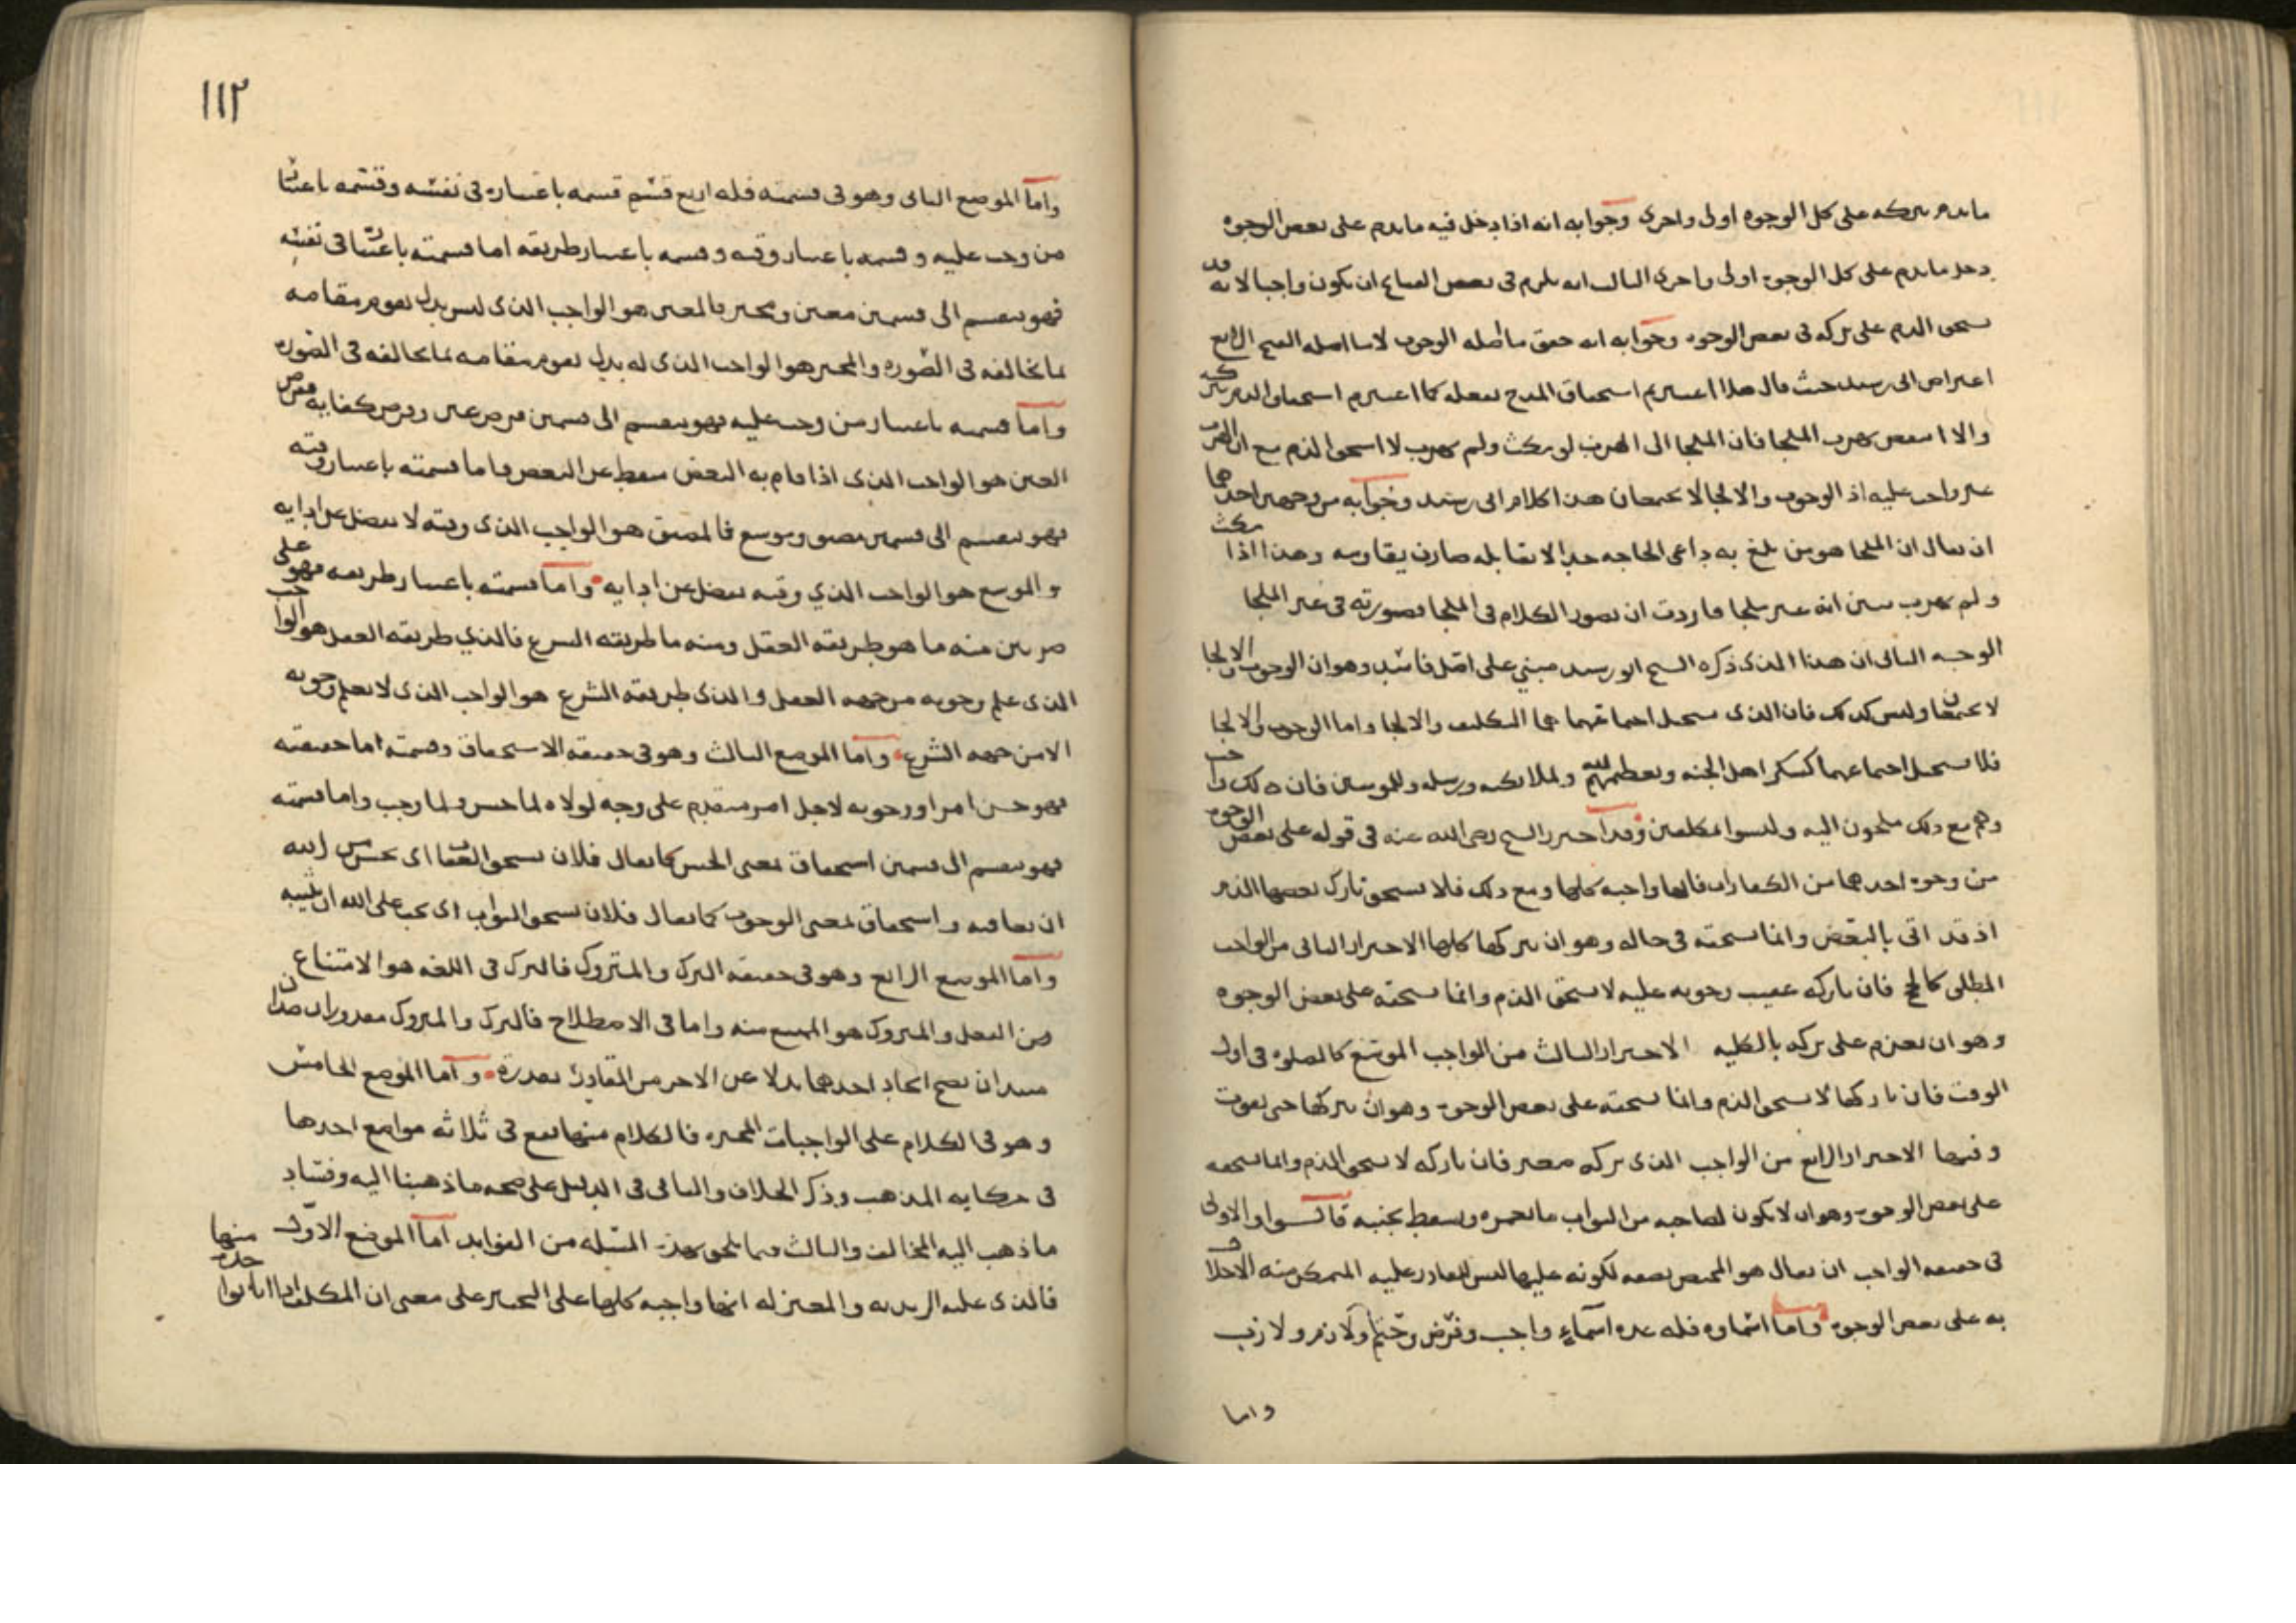 ما يذم بتركه على كل الوجوه اولى واحرى وجوابه انه اذا دخل فيه ما يذم على بعض الوجوه
دخل ما يذم على كل الوجوه اولى واحرى الثالث انه يلزم في بعض القبائح ان يكون واجبا لانه قد
يستحق الذم على تركه في بعض الوجوه وجوابه انه حقق ما اصله الوجوب لا ما اصله القبح الرابع
اعتراض ابي رشيد حيث قال هلا اعتبرتم استحقاق المدح بفعله كما اعتبرتم استحقاق الذم بتركه
والا انتقض بهرب الملجا فان الملجا الى الهرب لو مكث ولم يهرب لا استحق الذم مع ان الهرب
غير واجب عليه اذ الوجوب والالجا لا يجتمعان هذا كلام ابي رشيد وجوابه من وجهين احدها
ان يقال ان الملجا هو من بلغ به داعي الحاجه حدا لا يقابله صارف يقاومه وهذا اذا مكث
ولم يهرب تبين انه غير ملجا فاردت ان تصور الكلام في الملجا فصورته في غير الملجا
الوجه الثاني ان هذا الذي ذكره الشيخ ابو رشيد مبني على اصل فاسد وهو ان الوجوب والالجا
لا يجتمعان وليس كذلك فان الذي يستحيل اجتماعهما هما التكليف والالجا واما الوجوب والالجا
فلا يستحيل اجتماعهما كشكر اهل الجنه وتعظيمهم لله ولملائكته ورسله وللمومنين فان ذلك واجب
وهم مع ذلك ملجون اليه وليسوا مكلفين وقد احترز الشيخ رضي الله عنه في قوله على بعض الوجوه
من وجوه احدها من الكفارات فانها واجبه كلها ومع ذلك فلا يستحق تارك بعضها الذم
اذ قد اتى بالبعض وانما يستحقه في حاله وهو ان يتركها كلها الاحتراز الثاني من الواجب
المطلق كالحج فان تاركه عقيب وجوبه عليه لا يستحق الذم وانما يستحقه على بعض الوجوه
وهو ان يعزم على تركه بالكليه الاحتراز الثالث من الواجب الموسع كالصلوه في اول
الوقت فان تاركها لا يستحق الذم وانما يستحقه على بعض الوجوه وهو ان يتركها حتى يفوت
وقتها الاحتراز الرابع من الواجب الذي تركه صغير فان تاركه لا يستحق الذم وانما يستحقه
على بعض الوجوه وهو ان لا يكون لصاحبه من الثواب ما يغمره ويسقط بجنبه قالوا والاولى
في حقيقه الواجب ان يقال هو المختص بصفه لكونه عليها ليس للقادر عليه المتمكن منه الاخلال
به على بعض الوجوه واما اسماوه فله عده اسماء واجب وفرض وحتم ولازم ولازب
واما
١١٢
واما الموضع الثاني وهو في قسمته فله اربع قسم قسمه باعتباره في نفسه وقسمه باعتبار
من وجب عليه وقسمه باعتبار وقته وقسمه باعتبار طريقه اما قسمته باعتبار في نفسه
فهو ينقسم الى قسمين معين ومخير فالمعين هو الواجب الذي ليس بدل يقوم مقامه
بما يخالفه في الصوره والمخير هو الواجب الذي له بدل يقوم مقامه بما يخالفه في الصوره
واما قسمه باعتبار من وجب عليه فهو ينقسم الى قسمين فرض عين وفرض كفايه ففرض
العين هو الواجب الذي اذا قام به البعض سقط عن البعض واما قسمته باعتبار وقته
فهو ينقسم الى قسمين مضيق وموسع فالمضيق هو الواجب الذي وقته لا يفضل عن ادايه
والموسع هو الواجب الذي وقته يفضل عن ادايه واما قسمته باعتبار طريقه فهو على
ضربين منه ما هو طريقه العقل ومنه ما طريقه الشرع فالذي طريقه العقل هو الواجب
الذي علم وجوبه من جهه العقل والذي طريقه الشرع هو الواجب الذي لا يعلم وجوبه
الا من جهه الشرع واما الموضع الثالث وهو في حقيقه الاستحقاق وقسمته اما حقيقته
فهو حسن امر او وجوبه لاجل امر متقدم على وجه لولاه لما حسن ولما وجب واما قسمته
فهو ينقسم الى قسمين استحقاق بمعنى الحسن كما يقال فلان يستحق العقاب اي يحسن من الله
ان يعاقبه واستحقاق بمعنى الوجوب كما يقال فلان يستحق الثواب اي يجب على الله ان يثيبه
واما الموضع الرابع وهو في حقيقه الترك والمتروك فالترك في اللغه هو الامتناع
من الفعل والمتروك هو الممتنع منه واما في الاصطلاح فالترك والمتروك مقدوران ضدان
مبتديان يصح ايجاد احدهما بدلا عن الاخر من القادر بقدره واما الموضع الخامس
وهو في الكلام على الواجبات المخيره فالكلام منها يقع في ثلاثه مواضع احدها
في حكايه المذهب وذكر الخلاف والثاني في الدليل على صحه ما ذهبنا اليه وفساد
ما ذهب اليه المخالف والثالث فيما يلحق بهذه المسله من الفوايد اما الموضع الاول
فالذي عليه الزيديه والمعتزله انها واجبه كلها على التخيير على معنى ان المكلف اذا اتا بواحده منها